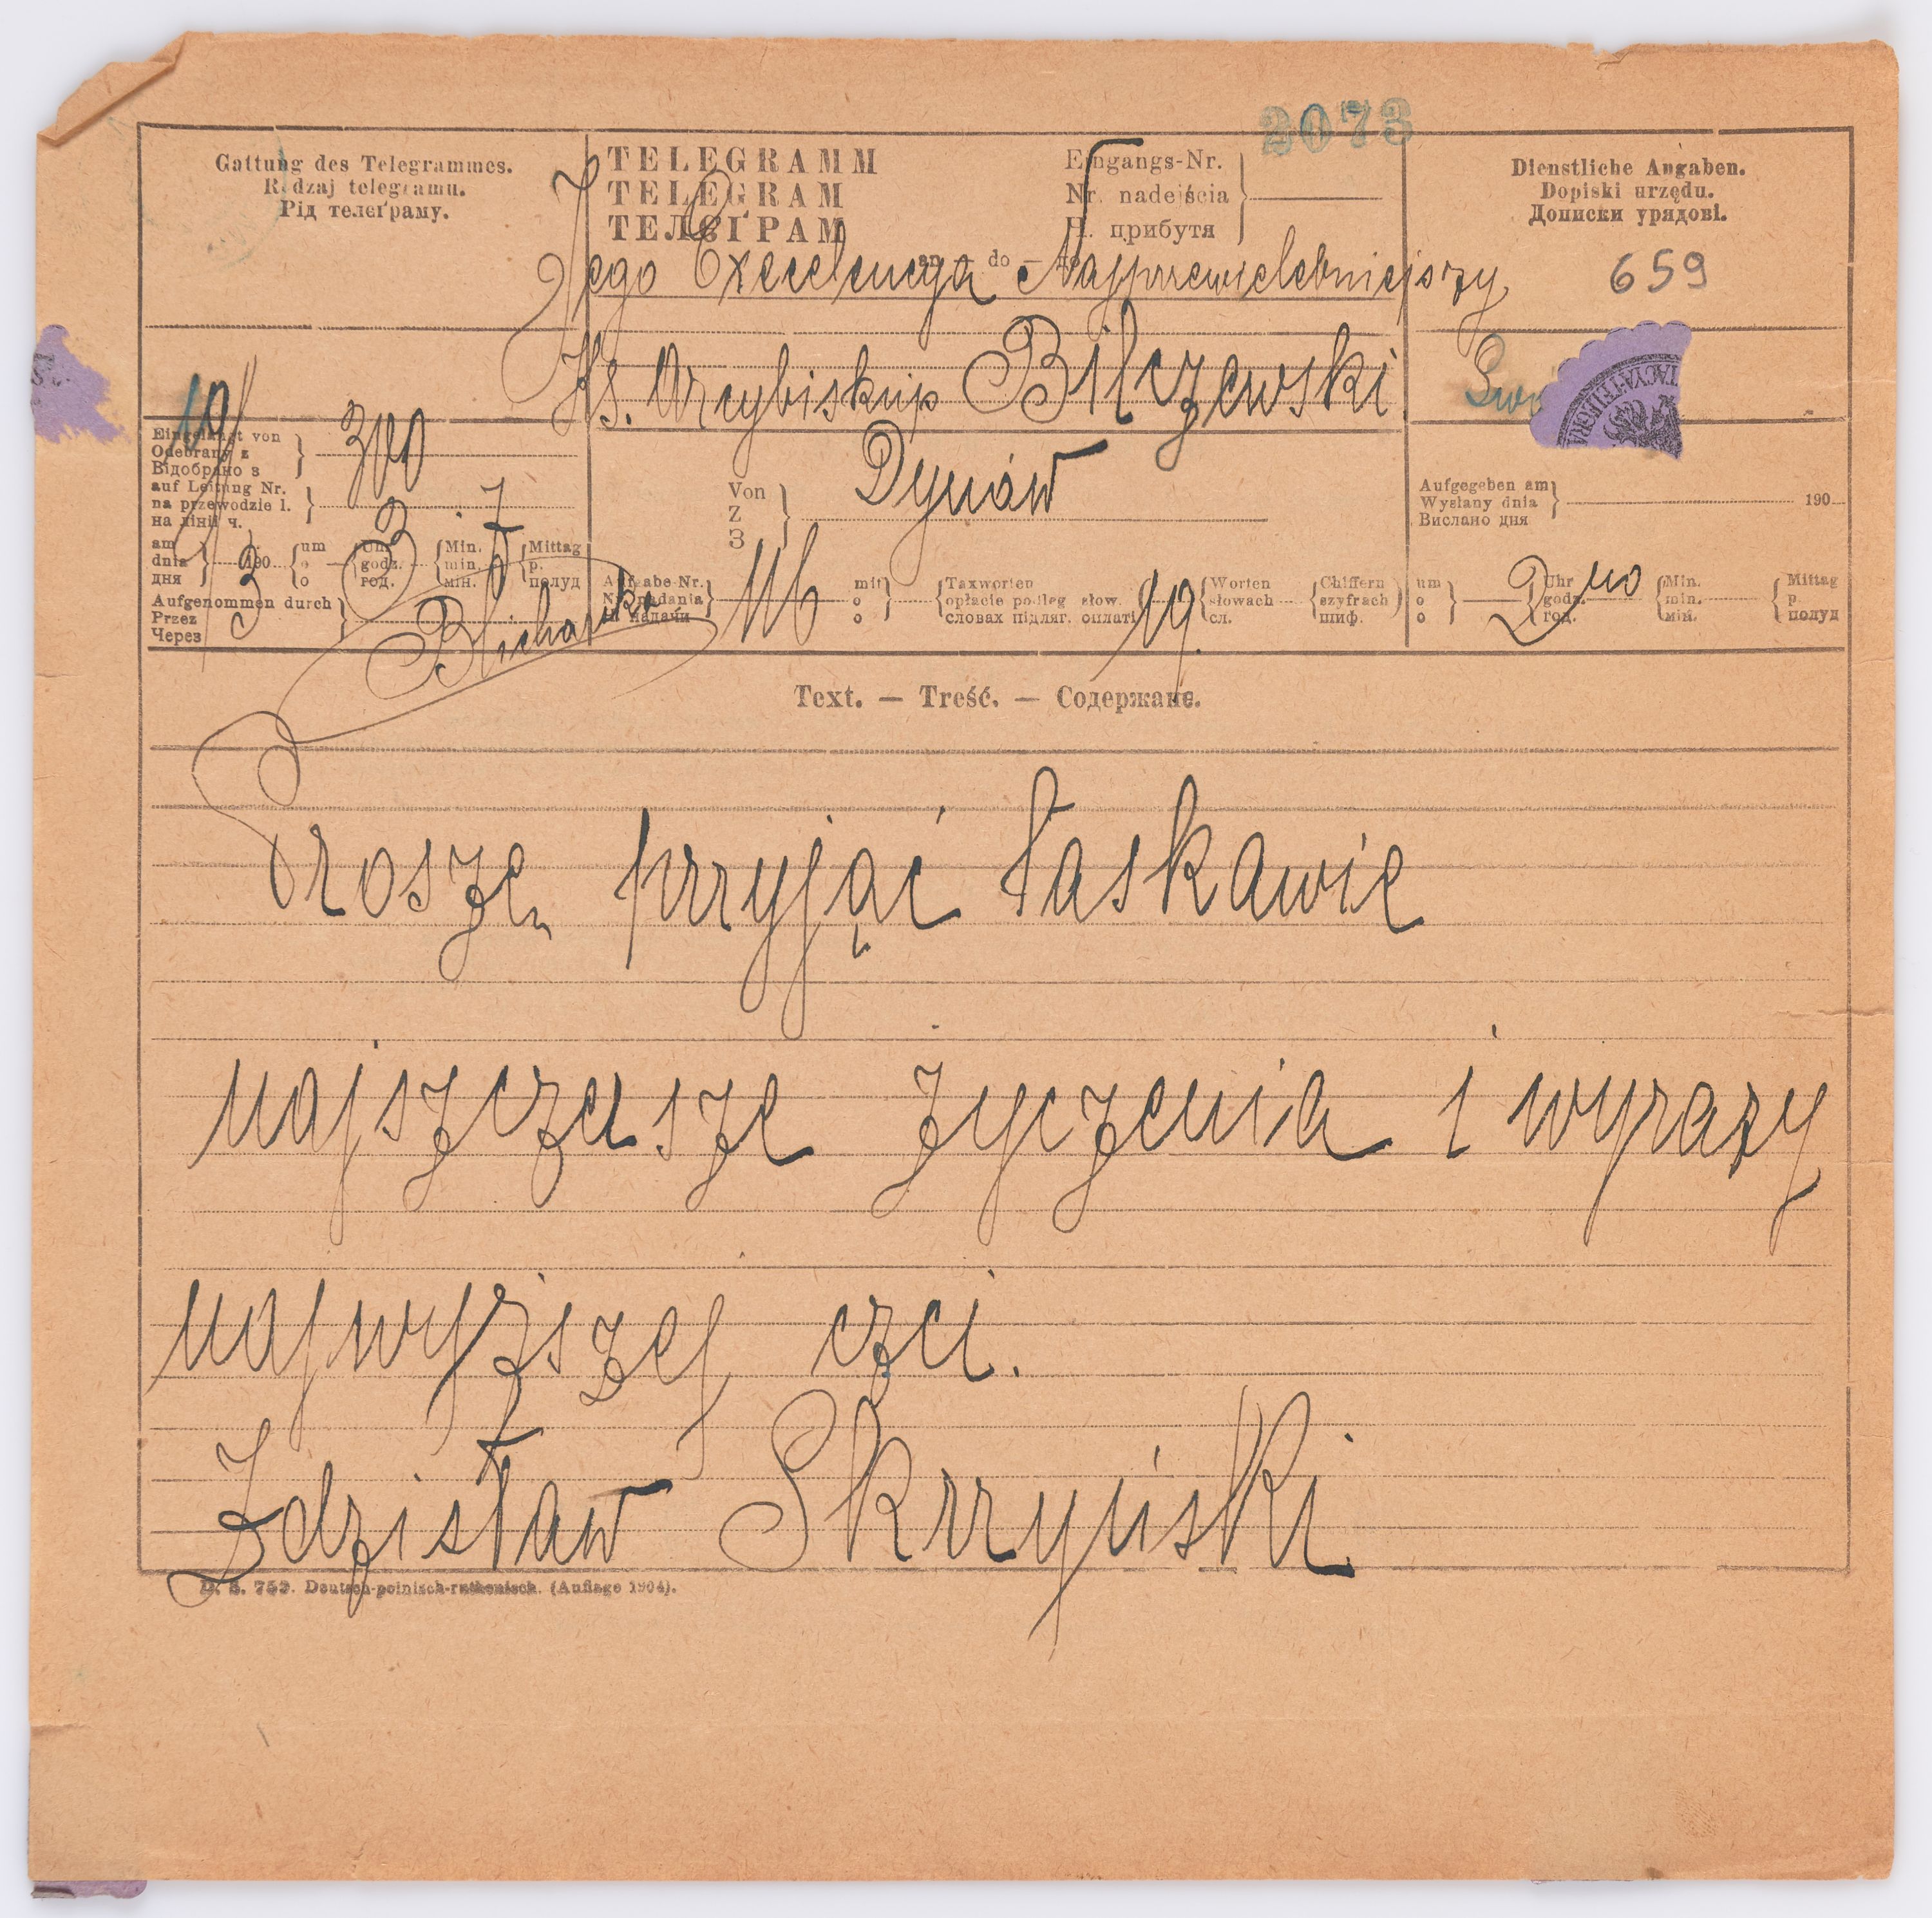 2073
Gattung des Telegrammes.
Rodzaj telegramu.
Рід телєґраму.
TELEGRAMM
TELEGRAM
ТЕЛЄҐРАМ
Eingangs-Nr.
Nr. nadejścia
Ч. прибутя
Dienstliche Angaben.
Dopiski urzędu.
Дописки урядові.
659
an — do — до
Jego Excelencya Najprzewielebniejszy
Ks. Arcybiskup Bilczewski
TACYA TELEGRA
Eingelangt von
Odebrany z
Відобрано з
300
auf Leitung Nr.
na przewodzie l.
на лінії ч.
Von
Z
З
Dynów
Aufgegeben am
Wysłany dnia
Вислано дня
190
am
dnia
дня
190
um
o
о
Uhr
godz.
год.
Min.
min.
мін.
Mittag
p.
полуд
Aufgenommen durch
Przez
Через
Aufgabe-Nr.
Nr. nadania
Ч. надачи
116
mit
o
о
Taxworten
opłacie podleg. słow.
словах підляг. оплаті
19
Worten
słowach
сл.
Chiffern
szyfrach
шиф.
um
o
о
Uhr
godz.
год.
Min.
min.
мін.
Mittag
p.
полуд
Text. — Treść. — Содержанє.
Proszę przyjąć łaskawie
najszczersze życzenia i wyrazy
najwyższej czci.
Zdzisław Skrzyński
D. S. 753. Deutsch-polnisch-ruthenisch. (Auflage 1904).